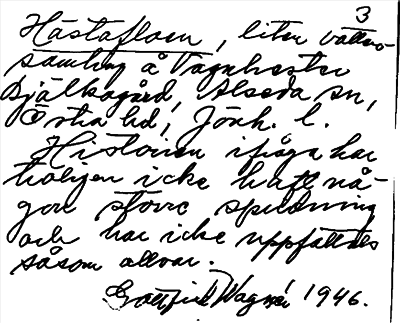 3
Hästaflosen, liten vatten-
samling å Vagnhester
Bjälkagård, Alseda sn,
Östra hd, Jönk. l.
Historien ifråga har
icke haft nå-
gon större spridning
och har icke uppfattats
såsom allvar.
Gottfrid Wagnér 1946.